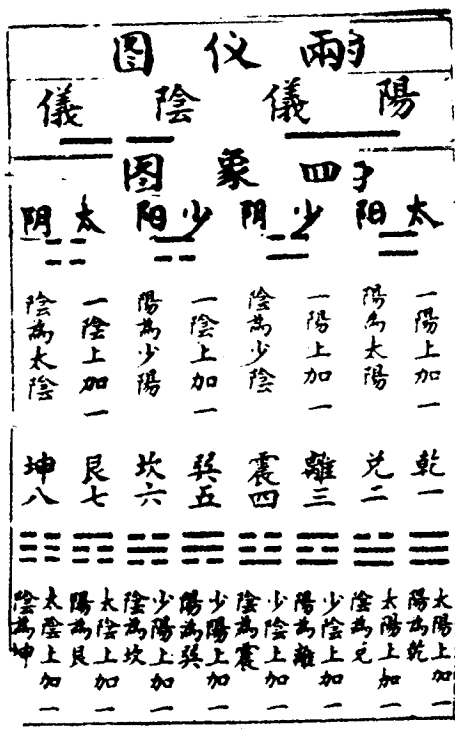 兩仪图
陽儀 陰儀
四象图
太阳 少阴 少阳 太阴
一陽上加一
陽為太陽
一陽上加一
陰為少陰
一陰上加一
陽為少陽
一陰上加一
陰為太陰
乾一 兌二 離三 震四 巽五 坎六 艮七 坤八
太陽上加一
陽為乾
太陽上加一
陰為兌
少陰上加一
陽為離
少陰上加一
陰為震
少陽上加一
陽為巽
少陽上加一
陰為坎
太陰上加一
陽為艮
太陰上加一
陰為坤